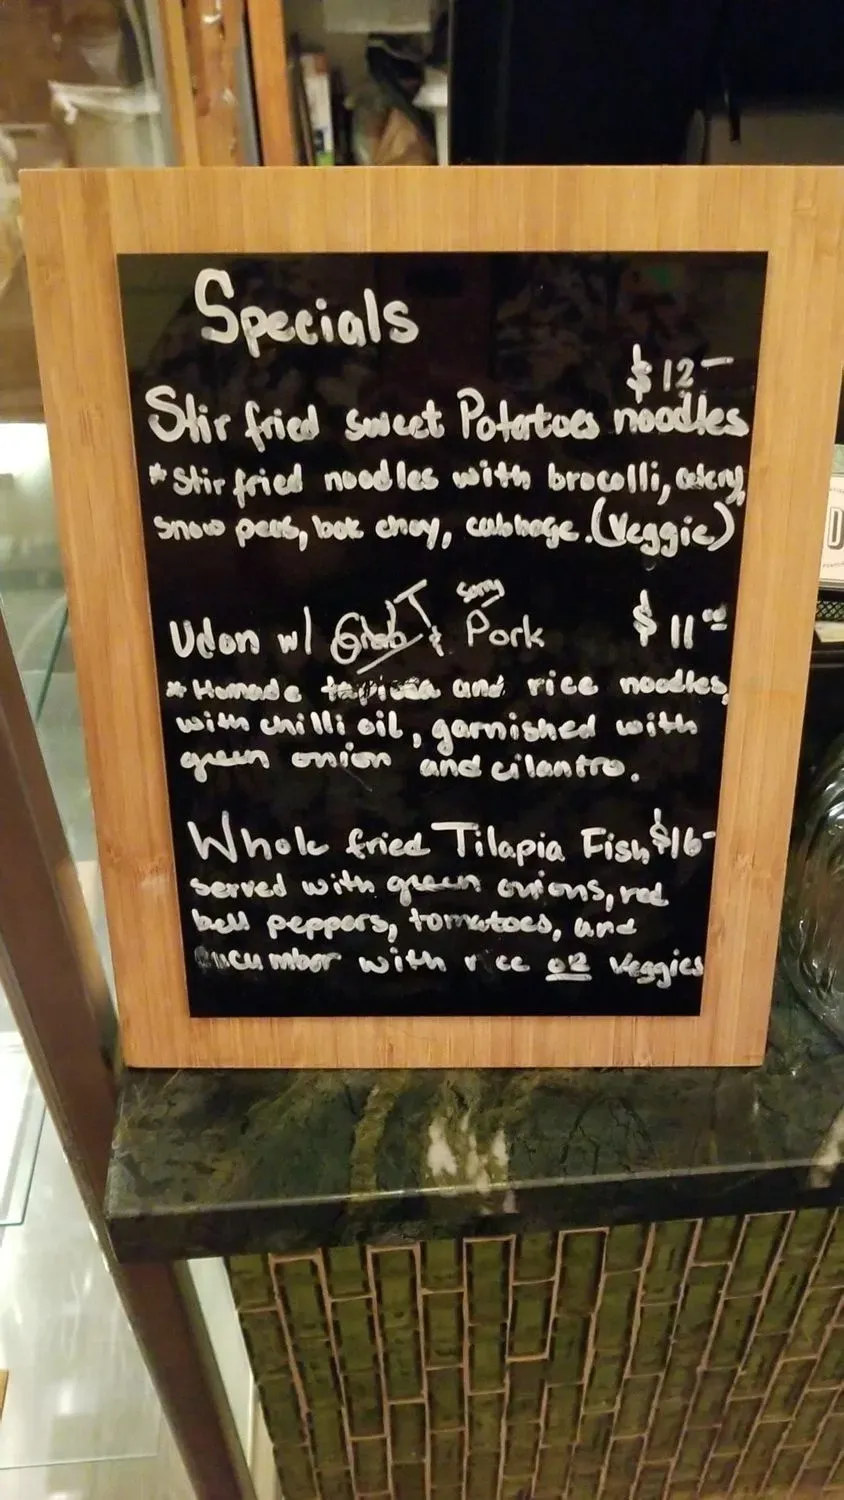 Specials
$12-
Stir fried sweet Potatoes noodles
*Stir fried noodles with brocolli, celery,
snow peas, bok choy, cabbage. (Veggie)
sorry
Udon w/ & Pork $11.00
* Homade tapioca and rice noodles,
with chilli oil, garnished with
green onion and cilantro.
Whole fried Tilapia Fish $16-
served with green onions, red
bell peppers, tomatoes, and
cucumber with rice or veggies
D